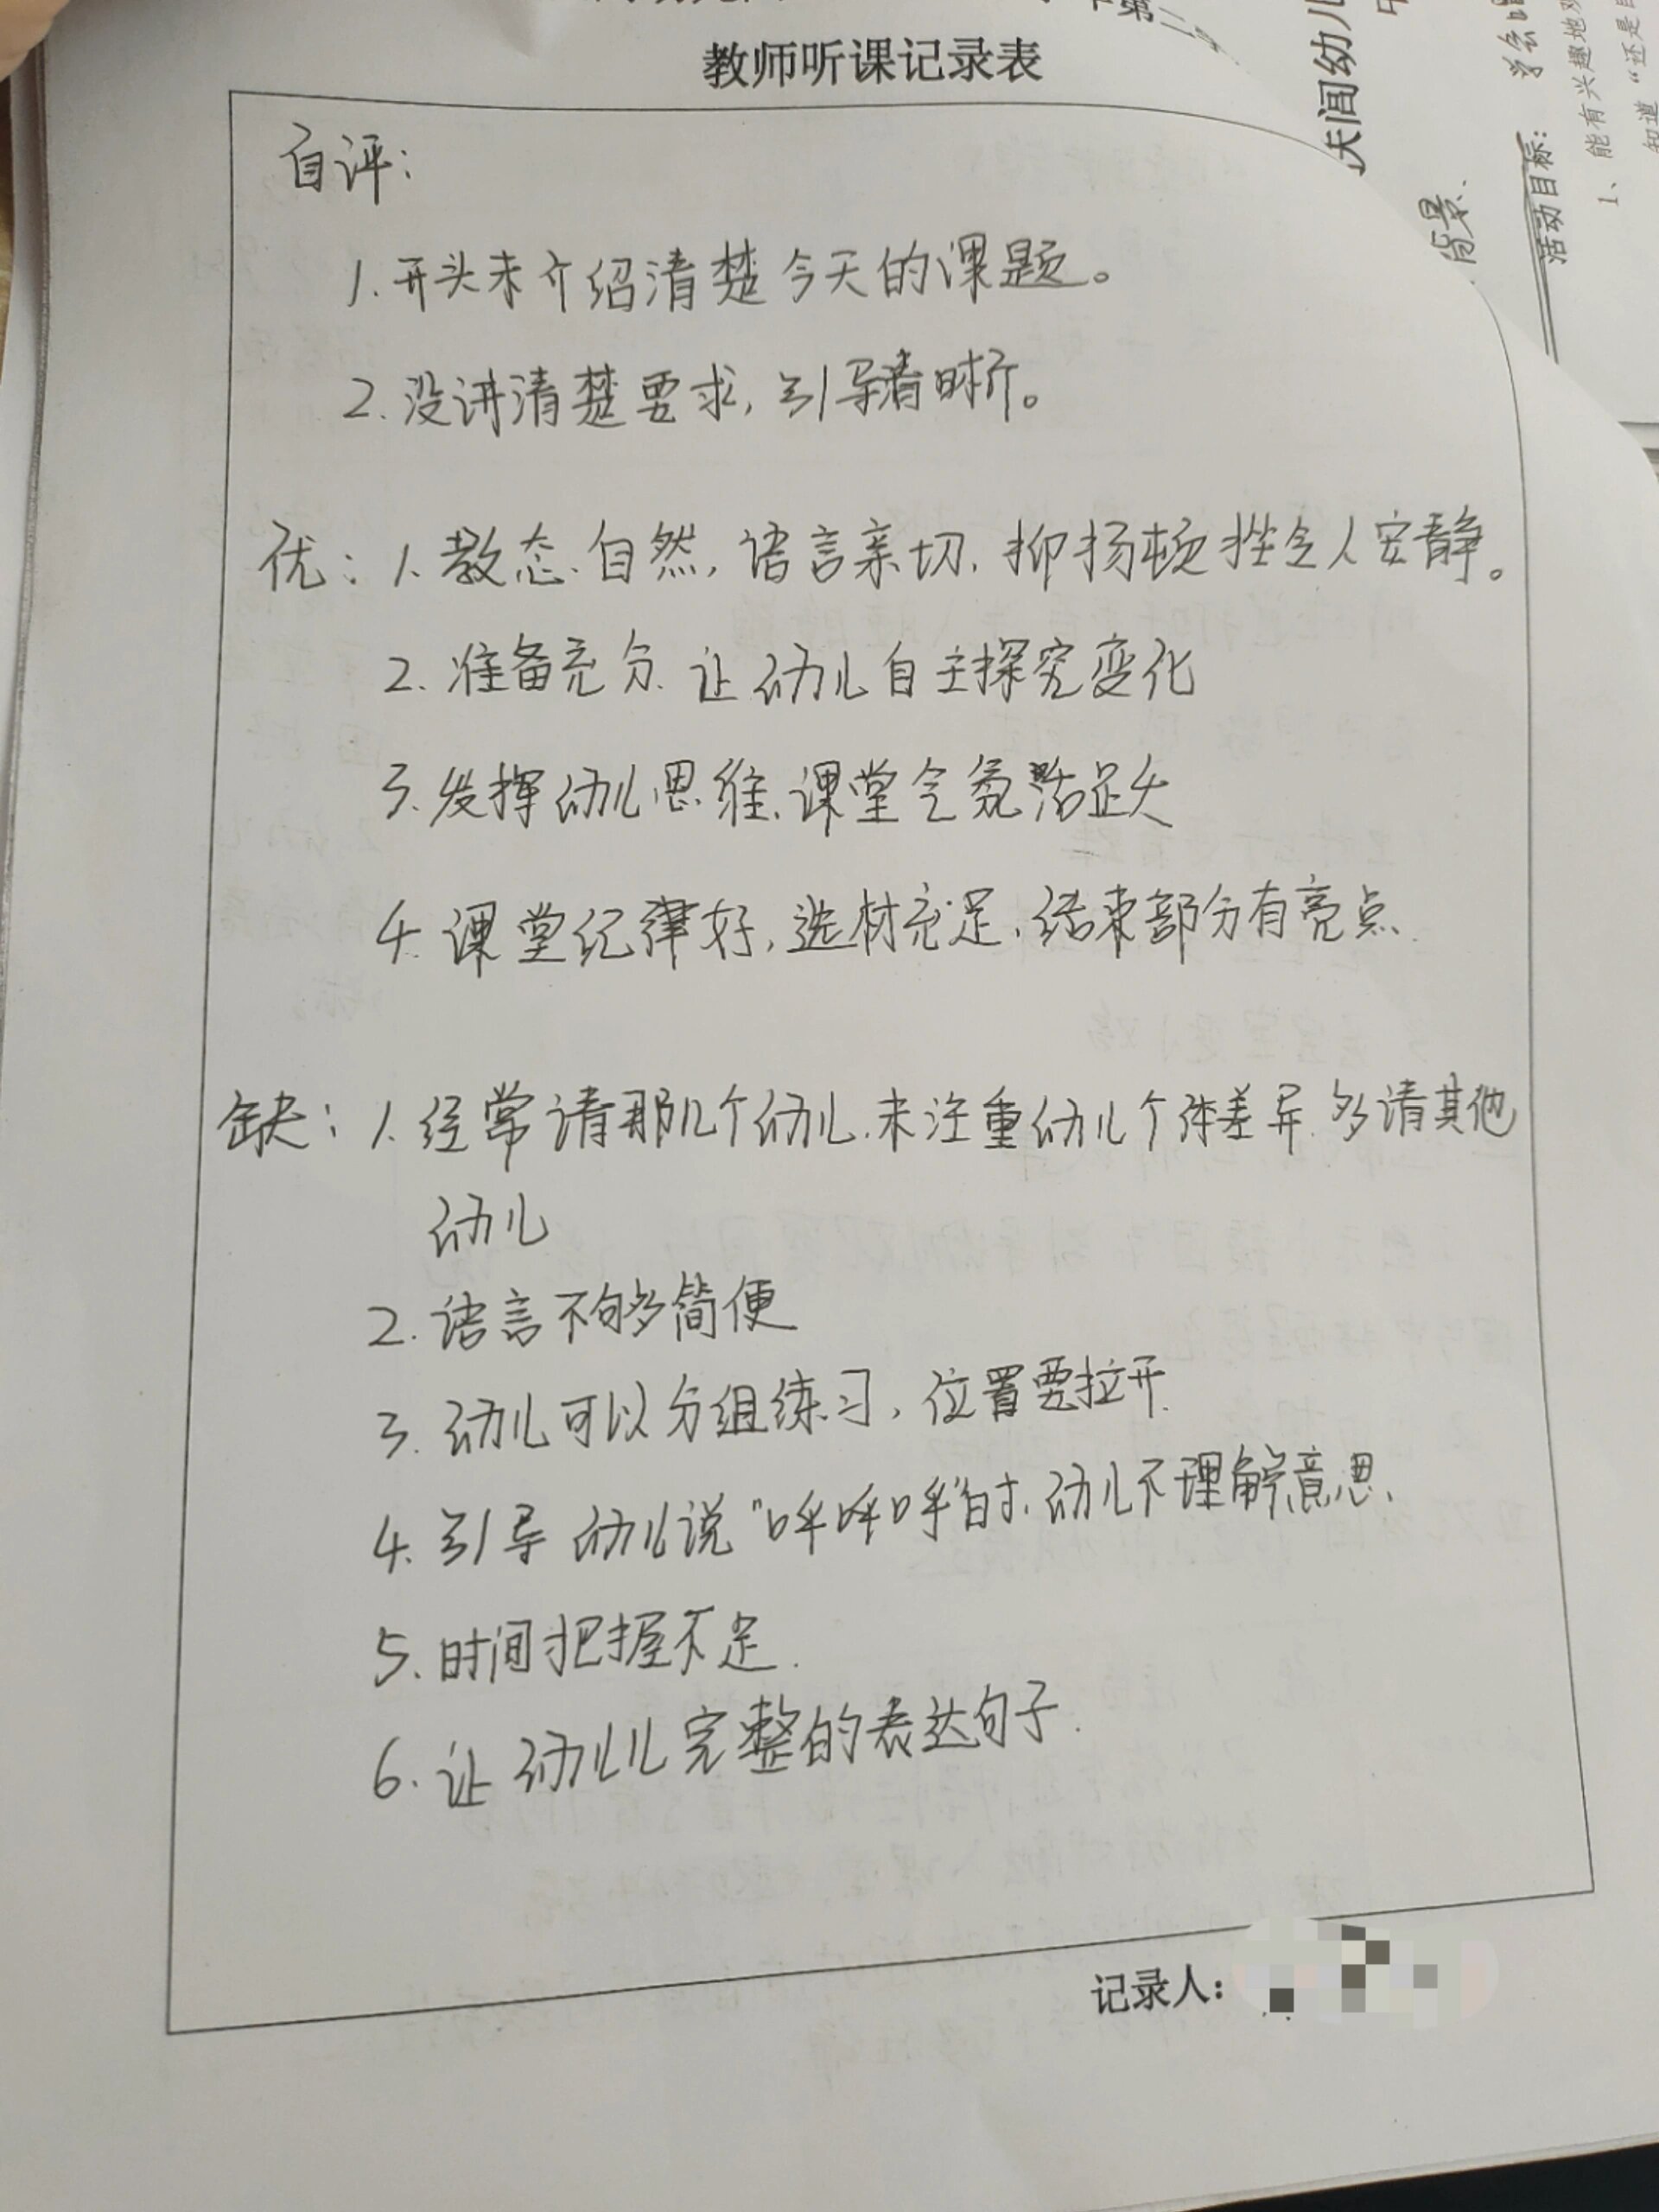 教师听课记录表
自评：
1.开头未介绍清楚今天的课题。
2.没讲清楚要求，引导清晰。
优：1.教态自然，语言亲切，抑扬顿挫令人安静。
2.准备充分.让幼儿自主探究变化
3.发挥幼儿思维.课堂气氛活跃
4.课堂纪律好，选材充足，结束部分有亮点.
缺：1.经常请那几个幼儿.未注重幼儿个体差异.多请其他
幼儿
2.语言不够简便
3.幼儿可以分组练习，位置要拉开.
4.引导幼儿说“呼呼呼”时.幼儿不理解意思.
5.时间把握不足.
6.让幼儿儿完整的表达句子.
记录人：
间幼儿
背景.
活动目标：
学会
1、能有兴趣地
知道“还是